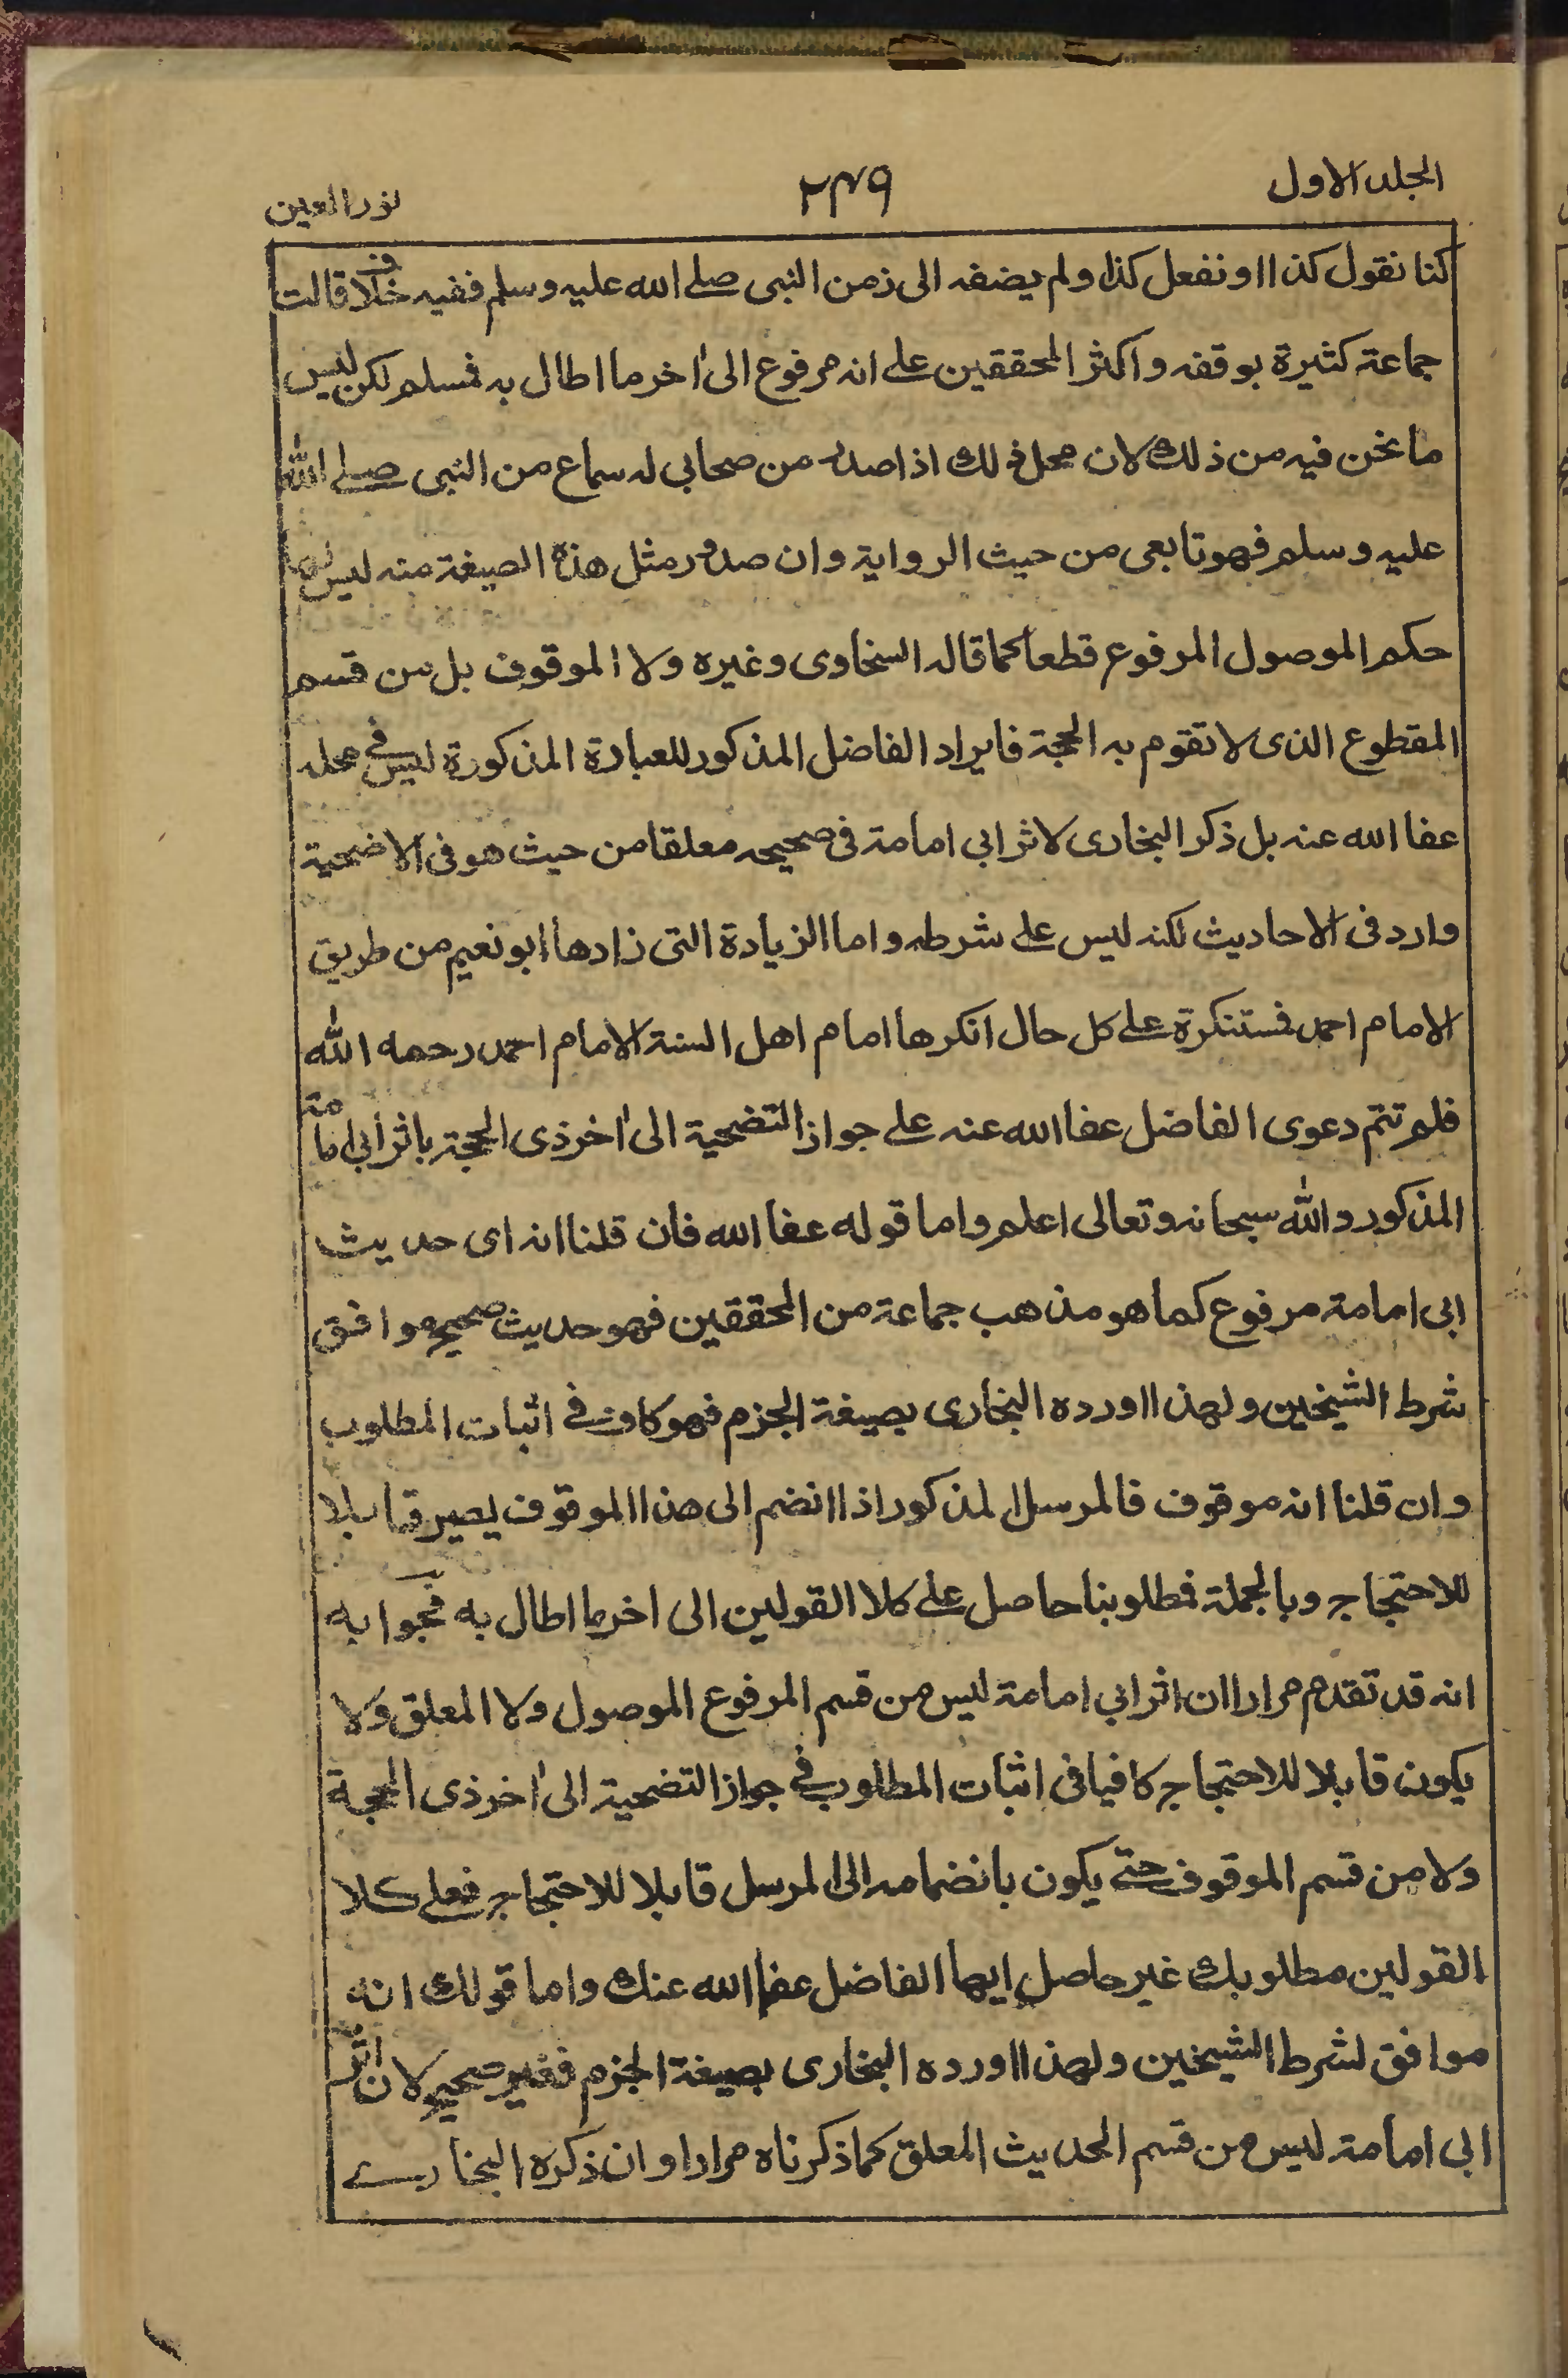 الجلد الاول
٢٤٩
نور العين
كنا نقول كذا او نفعل كذا ولم يضفه الى زمن النبى صلے الله عليه وسلم ففيه خلاف قالت
جماعة كثيرة بوقفه واكثر المحققين علے انه مرفوع الى اٰخر ما اطال به فمسلم لكن ليس
ما نحن فيه من ذلك لان محل ذلك اذا صدر من صحابى له سماع من النبى صلے الله
عليه وسلم فهو تابعى من حيث الرواية وان صدور مثل هذه الصيغة منه ليس لها
حكم الموصول المرفوع قطعا كما قاله السخاوى وغيره ولا الموقوف بل من قسم
المقطوع الذى لا تقوم به الحجة فايراد الفاضل المذكور للعبارة المذكورة ليس فے محله
عفا الله عنه بل ذكر البخارى لاثر ابى امامة فى صحيحه معلقا من حيث هو فى الاضحية
وارد فى الاحاديث لكنه ليس علے شرطه واما الزيادة التى زادها ابو نعيم من طريق
الامام احمد فمستنكرة علے كل حال انكرها امام اهل السنة الامام احمد رحمه الله
فلم تتم دعوى الفاضل عفا الله عنه علے جواز التضحية الى اٰخر ذى الحجة باثر ابى امامة
المذكور والله سبحانه وتعالى اعلم واما قوله عفا الله فان قلنا انه اى حديث
ابى امامة مرفوع كما هو مذهب جماعة من المحققين فهو حديث صحيح موافق
شرط الشيخين ولهذا اورده البخارى بصيغة الجزم فهو كاف فے اثبات المطلوب
وان قلنا انه موقوف فالمرسل المذكور اذا انضم الى هذا الموقوف يصير قابلا
للاحتجاج وبالجملة فمطلوبنا حاصل علے كلا القولين الى اخر ما اطال به فجوابه
انه قد تقدم مرارا ان اثر ابى امامة ليس من قسم المرفوع الموصول ولا المعلق ولا
يكون قابلا للاحتجاج كافيا فى اثبات المطلوب فے جواز التضحية الى اٰخر ذى الحجة
ولا من قسم الموقوف حتے يكون بانضمامه الى المرسل قابلا للاحتجاج فعلے كلا
القولين مطلوبك غير حاصل ايها الفاضل عفا الله عنك واما قولك انه
موافق لشرط الشيخين ولهذا اورده البخارى بصيغة الجزم فغير صحيح لان اثر
ابى امامة ليس من قسم الحديث المعلق كما ذكرناه مرارا وان ذكره البخارے